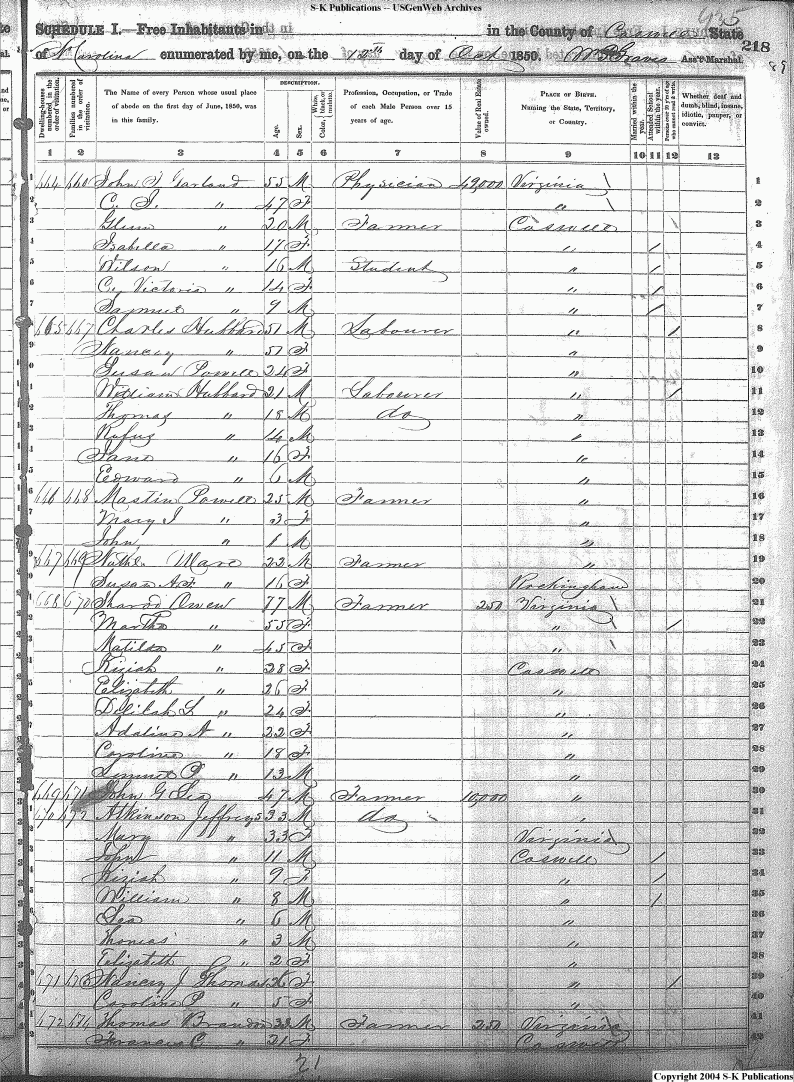 S-K Publications -- USGenWeb Archives
935
SCHEDULE I.—Free Inhabitants in in the County of Caswell State
of N Carolina enumerated by me, on the 12th day of Oct 1850. Wm Graves Ass't Marshal. 218
Dwelling-houses numbered in the order of visitation. Families numbered in the order of visitation. The Name of every Person whose usual place of abode on the first day of June, 1850, was in this family. DESCRIPTION. Age. Sex. Color, White, black, or mulatto. Profession, Occupation, or Trade of each Male Person over 15 years of age. Value of Real Estate owned. PLACE OF BIRTH. Naming the State, Territory, or Country. Married within the year. Attended School within the year. Persons over 20 y'rs of age who cannot read & write. Whether deaf and dumb, blind, insane, idiotic, pauper, or convict.
1 2 3 4 5 6 7 8 9 10 11 12 13
1 John Garland 55 M Physician 49,000 Virginia \ 1
2 C. I. " 47 F " \ 2
3 Glenn " 20 M Farmer Caswell / 3
4 Isabella " 17 F " / 4
5 Wilson " 16 M Student " / 5
6 C. Victoria " 14 F " / 6
7 Samuel " 9 M " / 7
8 665 667 Charles Hubbard 51 M Labourer " / 8
9 Nancy " 51 F " 9
Susan Powell 24 F " 10
William Hubbard 21 M Labourer " / 11
Thomas " 18 M do " 12
Rufus " 14 M " 13
Jane " 16 F " 14
Edward " 6 M " 15
666 668 Mastin Powell 25 M Farmer " 16
Mary J " 3 F " 17
John " 1 M " 18
667 669 Nathl. Mare 22 M Farmer " 19
Susan A. F. " 16 F Rockingham 20
668 670 Sharod Owen 77 M Farmer 250 Virginia \ 21
Martha " 55 F " \ / 22
Matilda " 45 F " \ 23
Kiziah " 28 F Caswell 24
Elizabeth " 26 F " 25
Delilah L " 24 F " 26
Adaline A " 22 F " 27
Caroline " 18 F " 28
" 13 M " 29
669 671 John G Lea 47 M Farmer 10,000 " 30
670 672 Atkinson Jeffreys 33 M do " 31
Mary " 33 F Virginia 32
John " 11 M Caswell / 33
Kiziah " 9 F " / 34
William " 8 M " / 35
Lea " 6 M " 36
Thomas " 3 M " 37
Elizabeth " 2 F " 38
671 673 Nancy J Thomas F " / 39
Caroline P " 5 F " 40
672 674 Thomas Brandon M Farmer 250 Virginia 41
Frances C " 21 F Caswell 42
21
Copyright 2004 S-K Publications